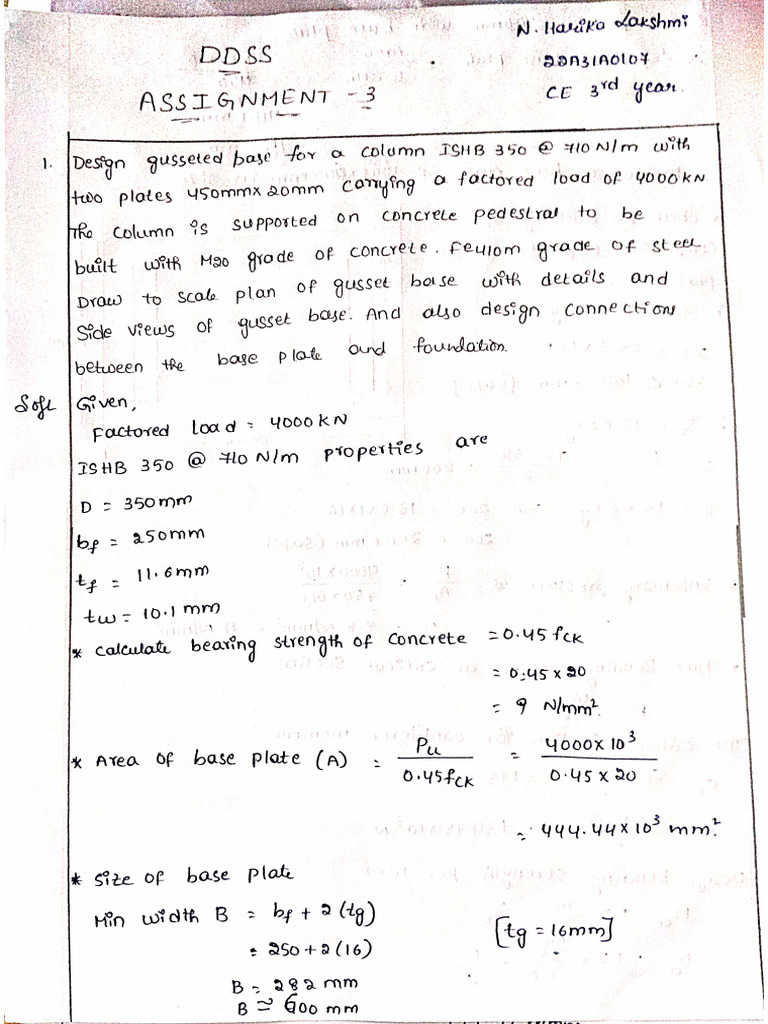 N. Harika Lakshmi
DDSS
22A31A0107
ASSIGNMENT - 3
CE 3rd year.
1. Design gusseted base for a column ISHB 350 @ 710 N/m with
two plates 450mm x 20mm carrying a factored load of 4000KN
The column is supported on concrete pedestral to be
built with M20 grade of concrete. Fe410m grade of steel
Draw to scale plan of gusset base with details and
Side views of gusset base. And also design connection
between the base plate and foundation.
Sol: Given,
Factored load = 4000 KN
ISHB 350 @ 710 N/m properties are
D = 350mm
bf = 250mm
tf = 11.6mm
tw = 10.1 mm
* Calculate bearing strength of concrete = 0.45 fck
= 0.45 x 20
= 9 N/mm².
* Area of base plate (A) = Pu / 0.45fck = 4000 x 10³ / 0.45 x 20
= 444.44 x 10³ mm².
* Size of base plate
Min width B = bf + 2 (tg) [tg = 16mm]
= 250 + 2 (16)
B = 282 mm
B ≃ 600 mm